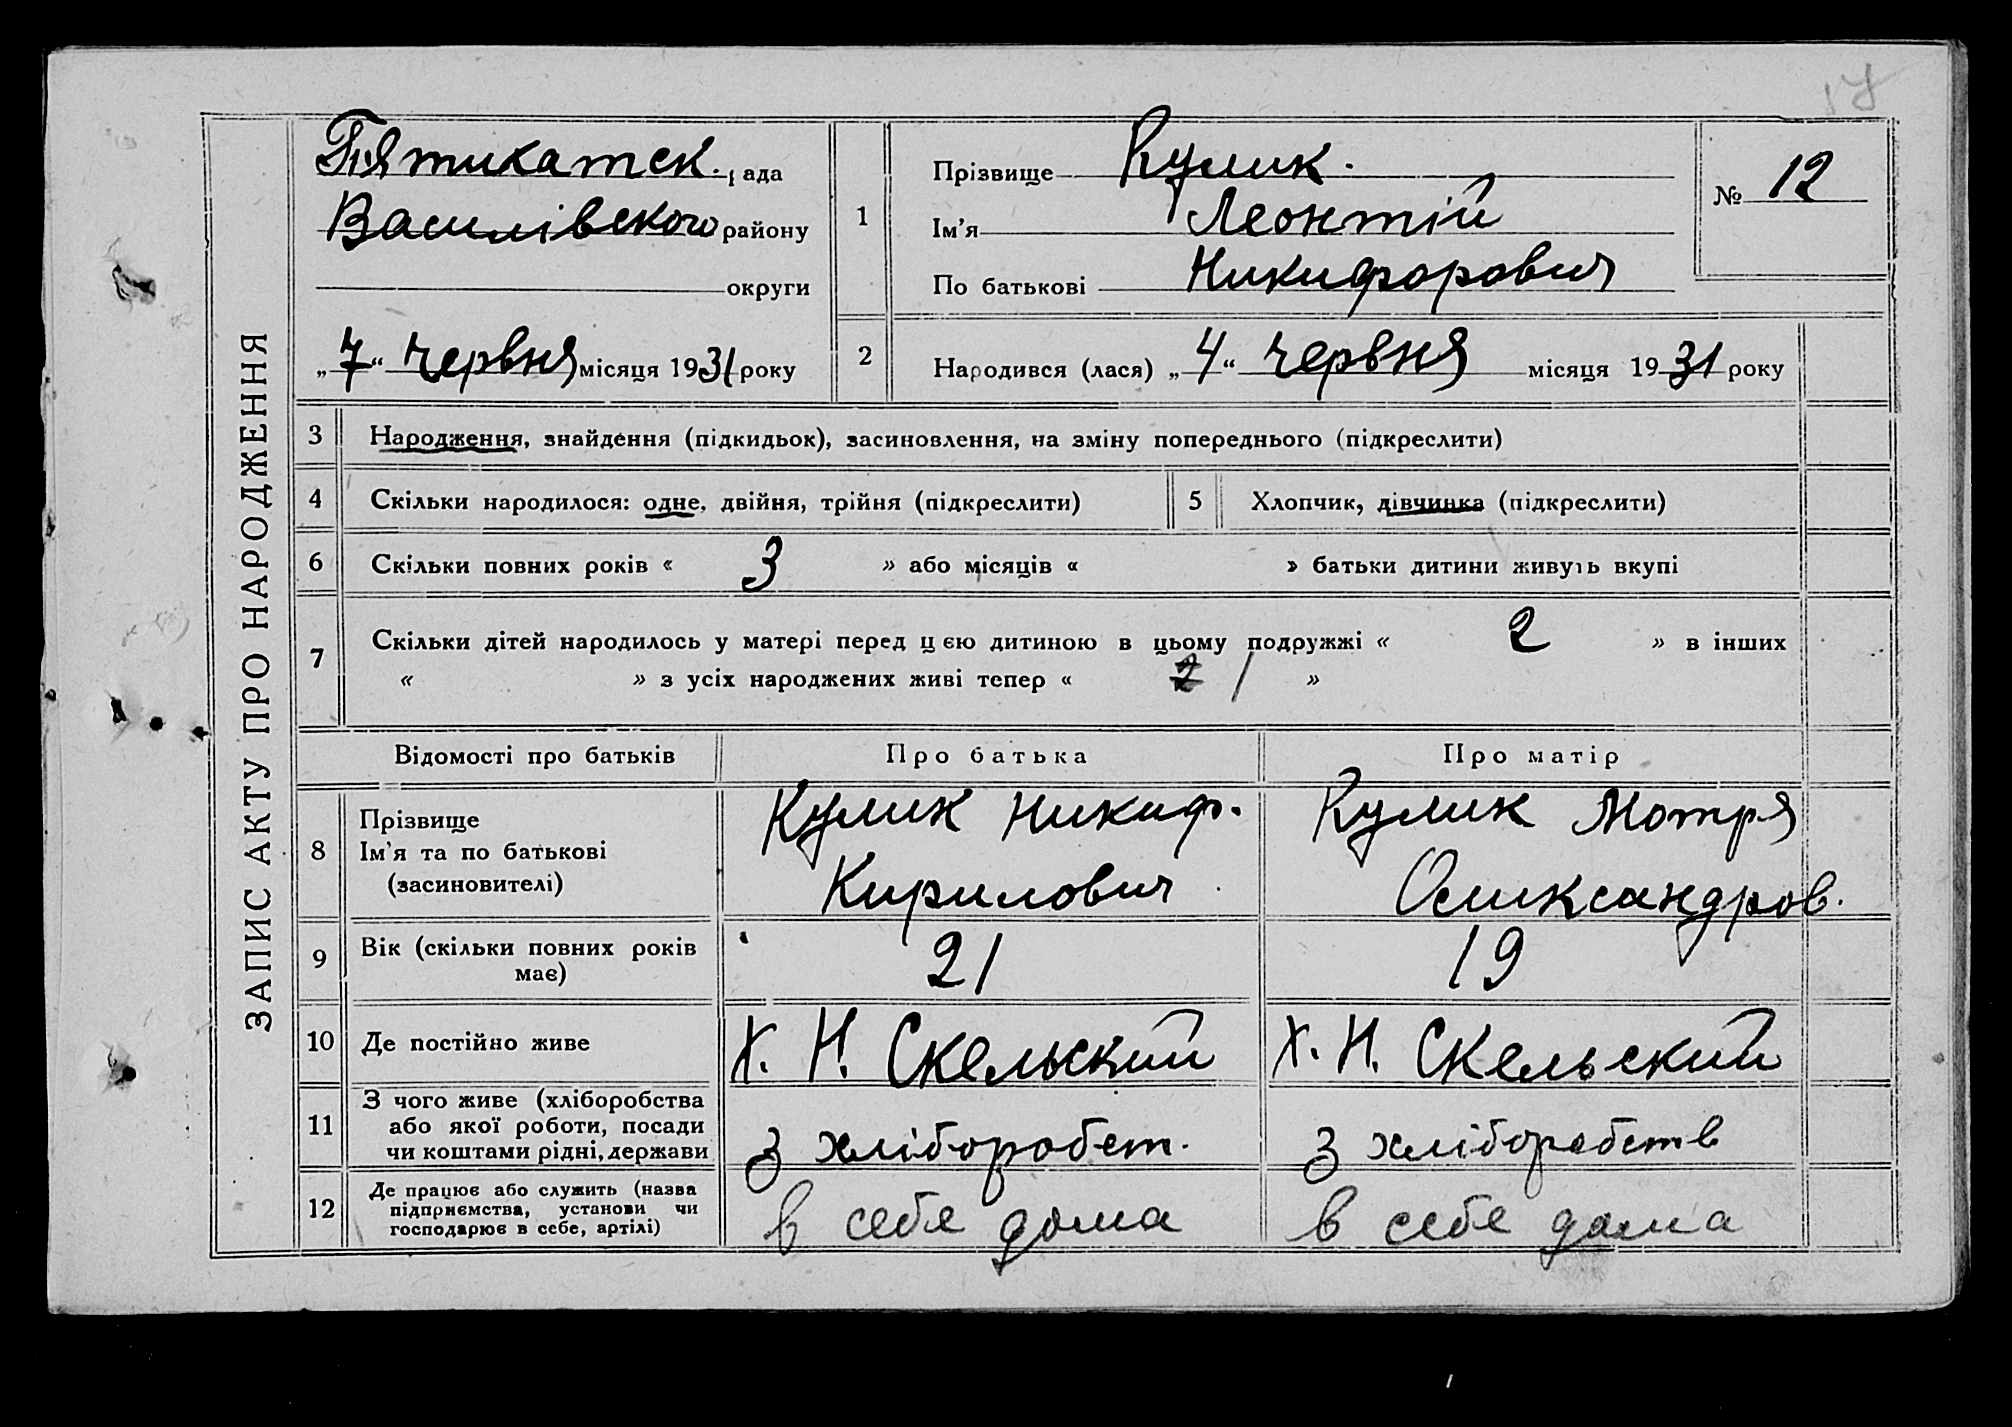 ЗАПИС АКТУ ПРО НАРОДЖЕННЯ
Пятихатск. рада
Василівского району
округи
„7“ червня місяця 1931 року
1
Прізвище Кулик.
Ім'я Леонтій
По батькові Никифорович
№ 12
2 Народився (лася) „4“ червня місяця 1931 року
3 Народження, знайдення (підкидьок), засиновлення, на зміну попереднього (підкреслити)
4 Скільки народилося: одне, двійня, трійня (підкреслити) 5 Хлопчик, дівчинка (підкреслити)
6 Скільки повних років « 3 » або місяців « » батьки дитини живуть вкупі
7 Скільки дітей народилось у матері перед цією дитиною в цьому подружжі « 2 » в інших
« » з усіх народжених живі тепер « 2 1 »
Відомості про батьків Про батька Про матір
8 Прізвище
Ім'я та по батькові
(засиновителі)
Кулик Никиф.
Кирилович
Кулик Мотря
Олиександров.
9 Вік (скільки повних років
має)
21
19
10 Де постійно живе Х. Н. Скельский Х. Н. Скельский
11 З чого живе (хліборобства
або якої роботи, посади
чи коштами рідні, держави
з хліборобст.
з хліборобств
12 Де працює або служить (назва
підприємства, установи чи
господарює в себе, артілі)
в себе дома
в себе дома